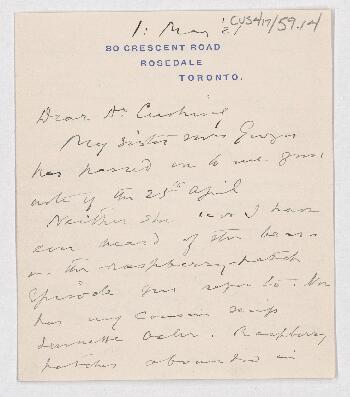 1: May '21
CUS417/59.14
80 CRESCENT ROAD
ROSEDALE
TORONTO.
Dear Dr Cushing
My sister Mrs Gwyn
has passed on to me your
note of the 25th April
Neither she nor I have
ever heard of the bear
in the raspberry patch
episode you refer to. Nor
has my cousin Miss
Jennette Osler. Raspberry
patches abounded in